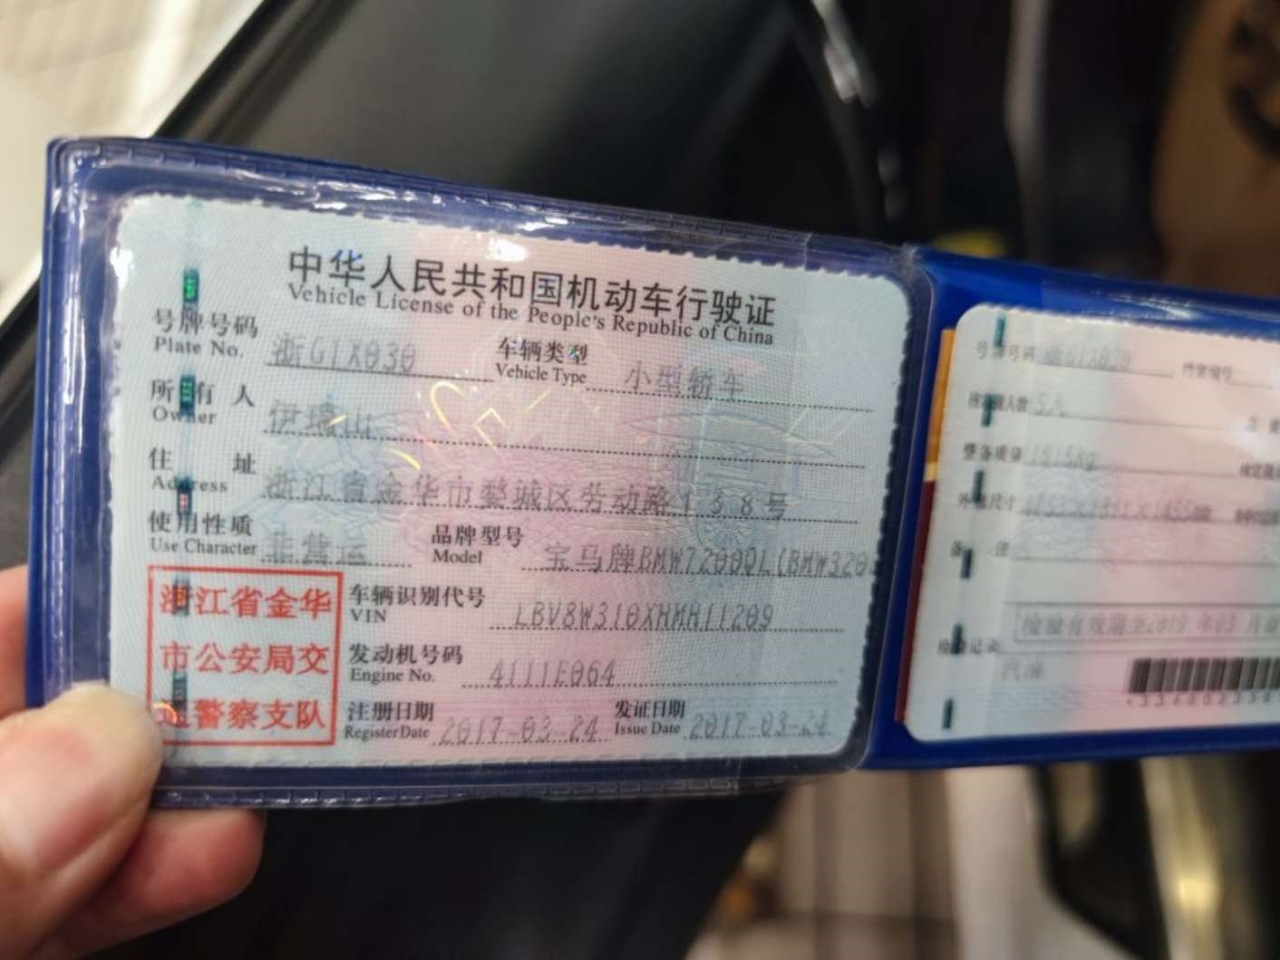 中华人民共和国机动车行驶证
Vehicle License of the People's Republic of China
号牌号码 浙G1X030 车辆类型 小型轿车
Plate No. Vehicle Type
所有人 伊瑞山
Owner
住址 浙江省金华市婺城区劳动路138号
Address
使用性质 非营运 品牌型号 宝马牌BMW7200QL(BMW320
Use Character Model
浙江省金华
市公安局交
通警察支队
车辆识别代号
VIN
发动机号码 4111E064
Engine No.
注册日期 2017-03-24 发证日期 2017-03-24
Register Date Issue Date
号牌号码 浙G1X030
5人
整备质量 1615kg
外廓尺寸
备注
检验有效期至2019年03月
检验记录
汽油